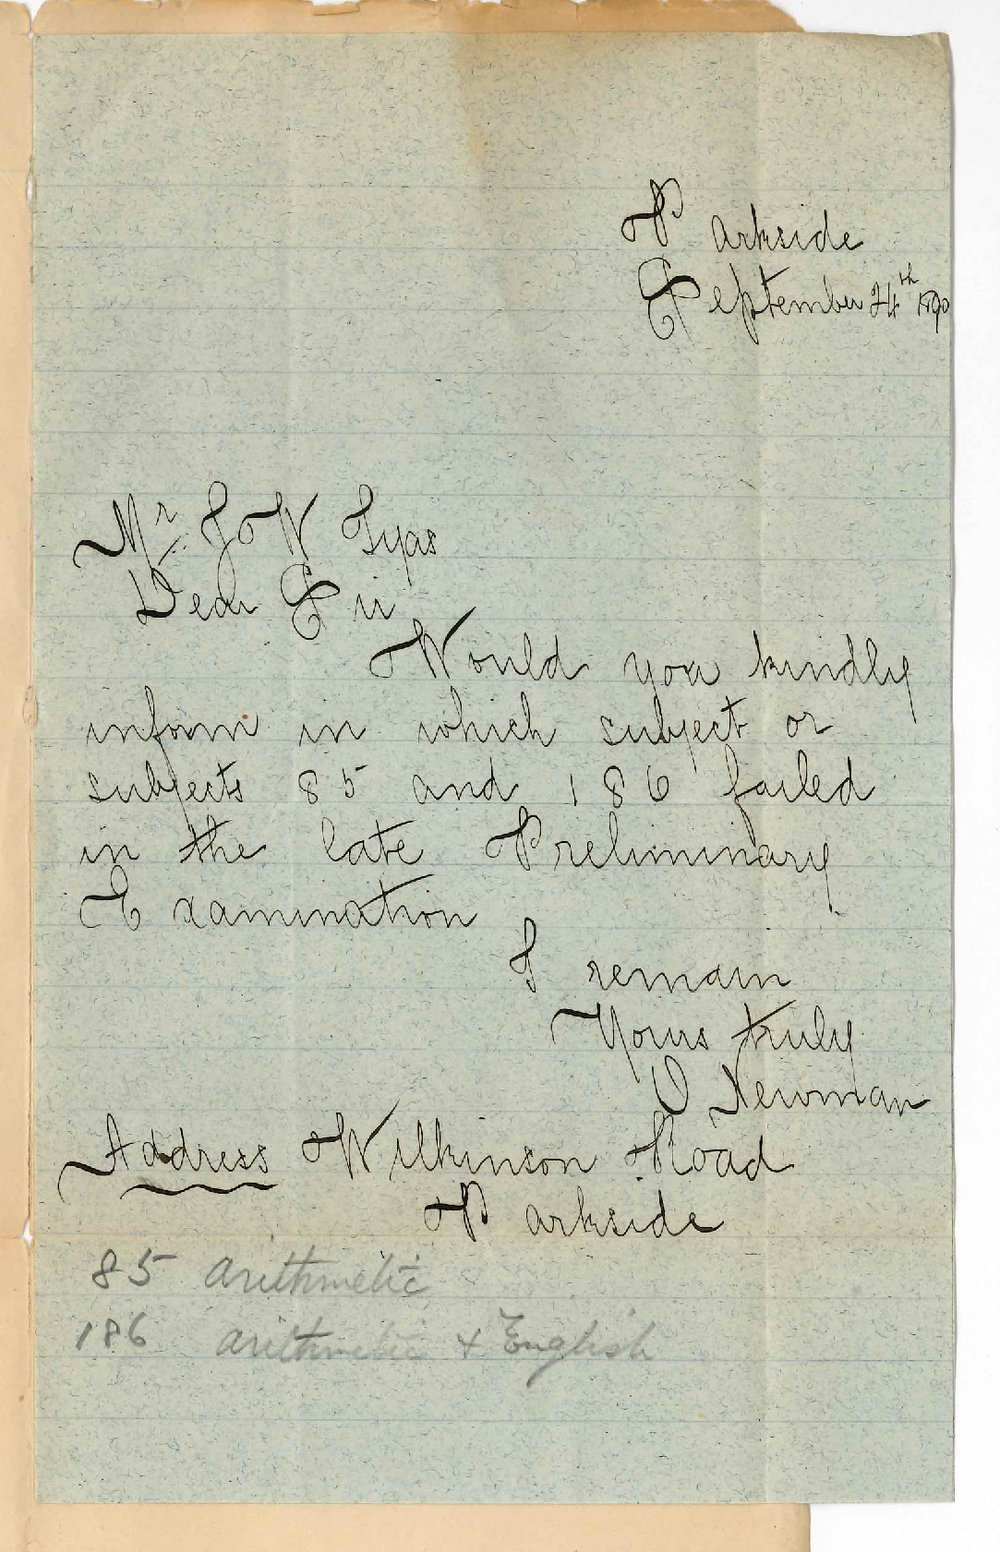 Parkside
September 24th 1890
Mr J W Tyas
Dear Sir
Would you kindly
inform in which subject or
subjects 85 and 186 failed
in the late Preliminary
Examination
I remain
Yours truly
O Newman
Address Wilkinson Road
Parkside
85 arithmetic
186 arithmetic & English